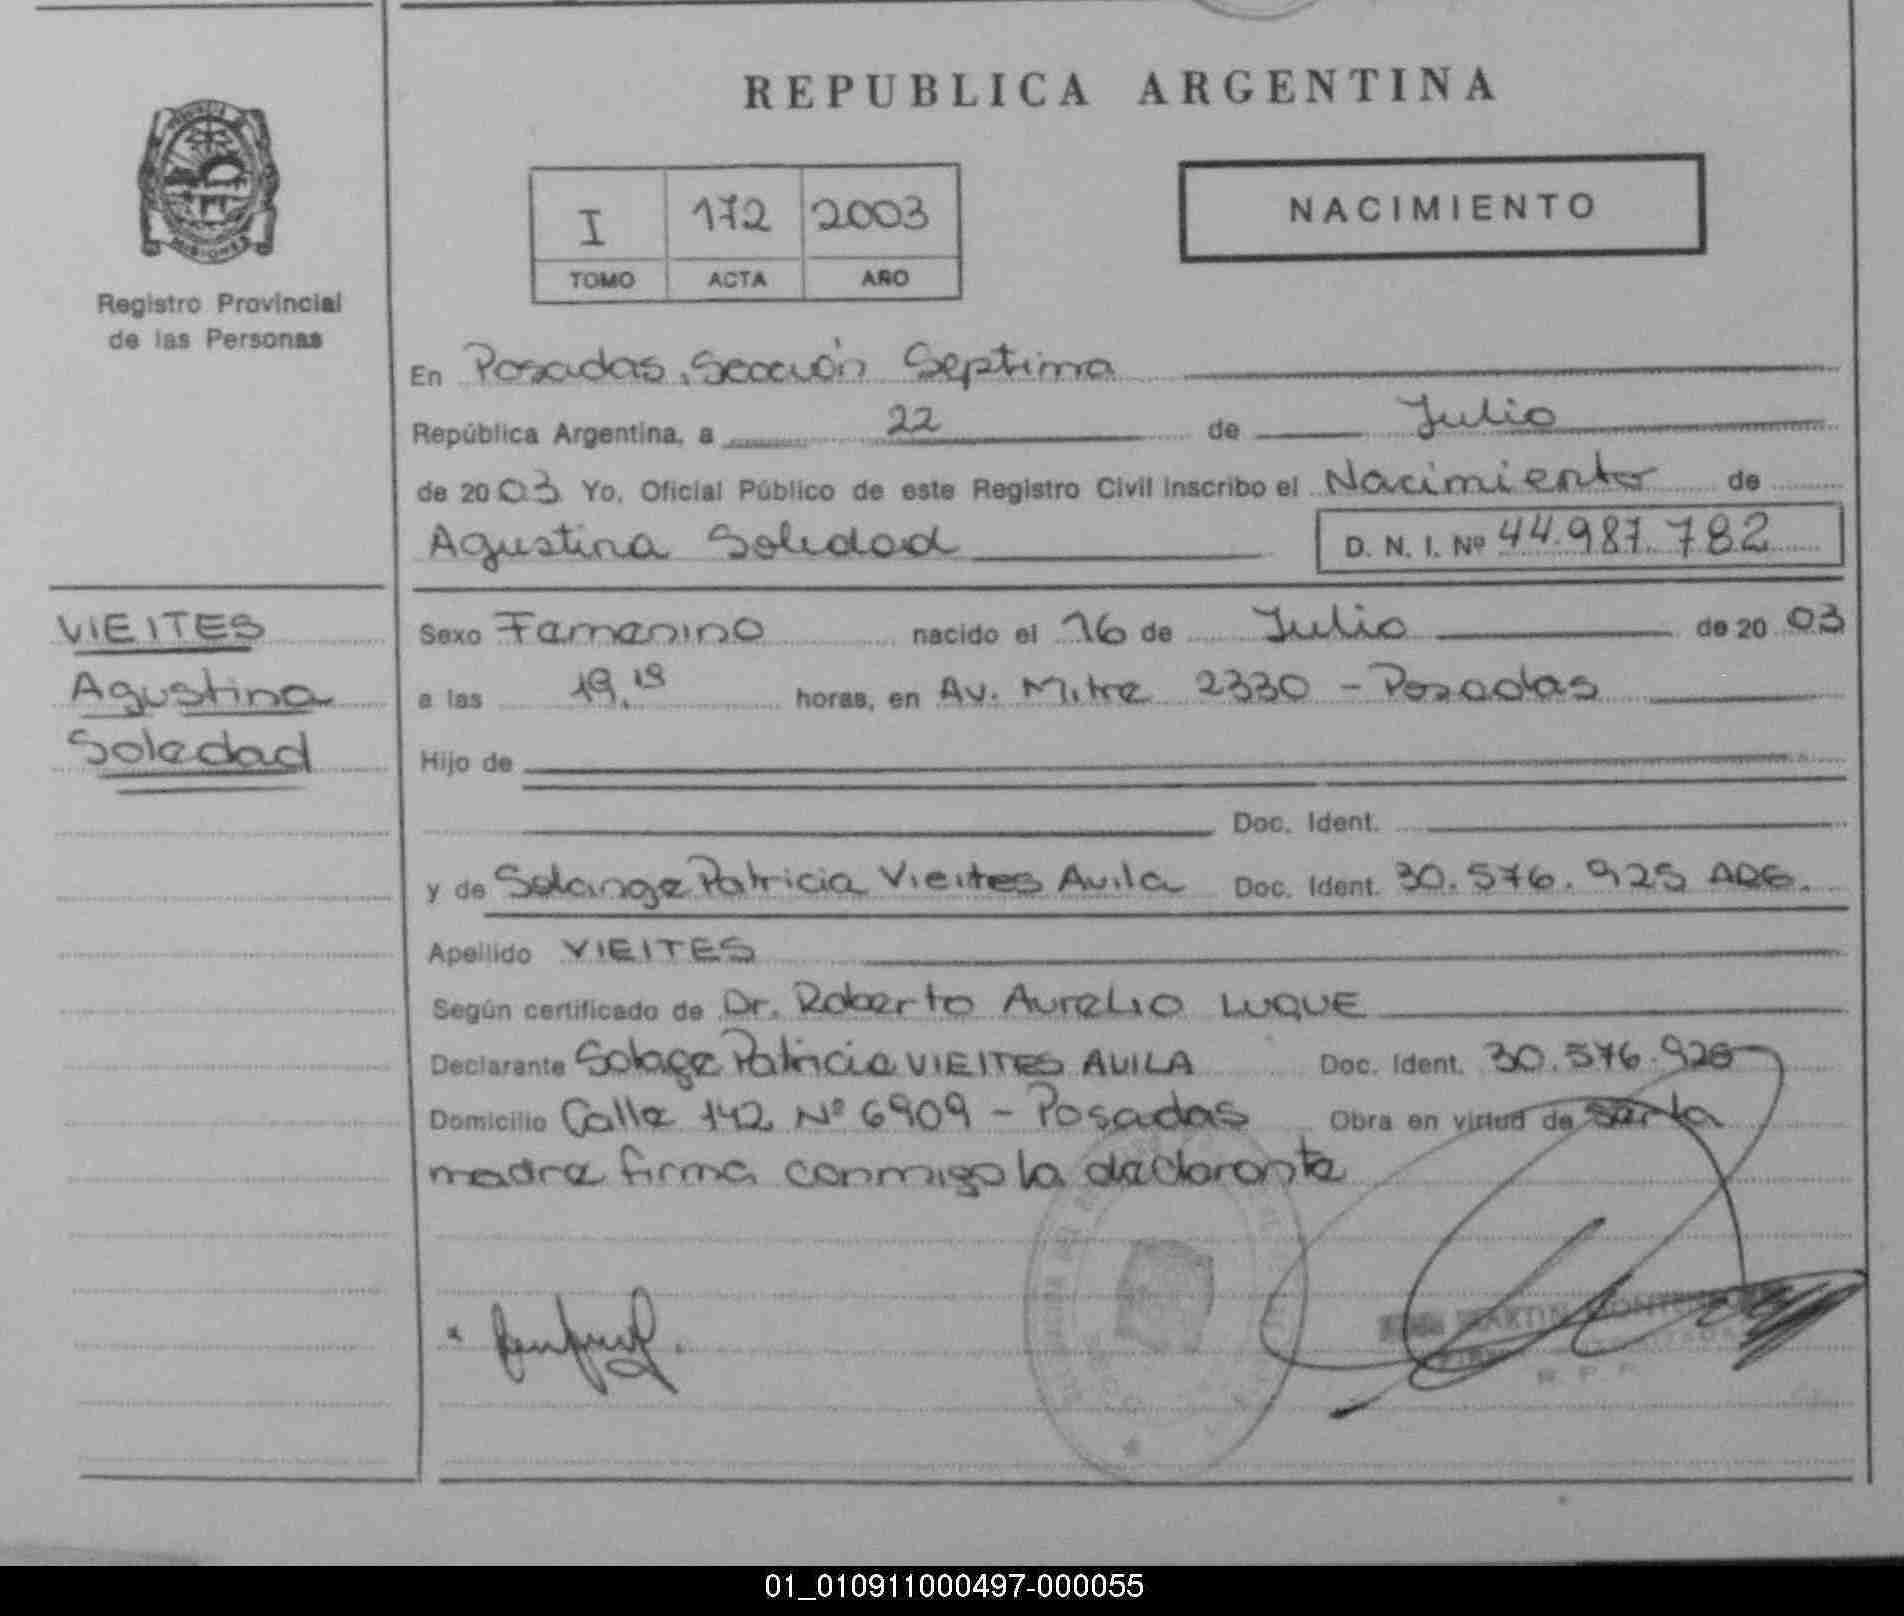 REPUBLICA ARGENTINA
I 172 2003
TOMO ACTA AÑO
NACIMIENTO
MISIONES
Registro Provincial
de las Personas
En Posadas, Sección Septima
República Argentina, a 22 de Julio
de 2003 Yo, Oficial Público de este Registro Civil inscribo el Nacimiento de
Agustina Soledad D. N. I. Nº 44.987.782
VIEITES
Agustina
Soledad
Sexo Femenino nacido el 16 de Julio de 2003
a las 19,19 horas, en Av. Mitre 2330 - Posadas
Hijo de
Doc. Ident.
y de Solange Patricia Vieites Avila Doc. Ident. 30.576.925 ARG.
Apellido VIEITES
Según certificado de Dr. Roberto Aurelio LUQUE
Declarante Solage Patricia VIEITES AVILA Doc. Ident. 30.576.925
Domicilio Calle 142 Nº 6909 - Posadas Obra en virtud de ser la
madre firma conmigo la declarante
MARTIN
R. P. P.
01_010911000497-000055